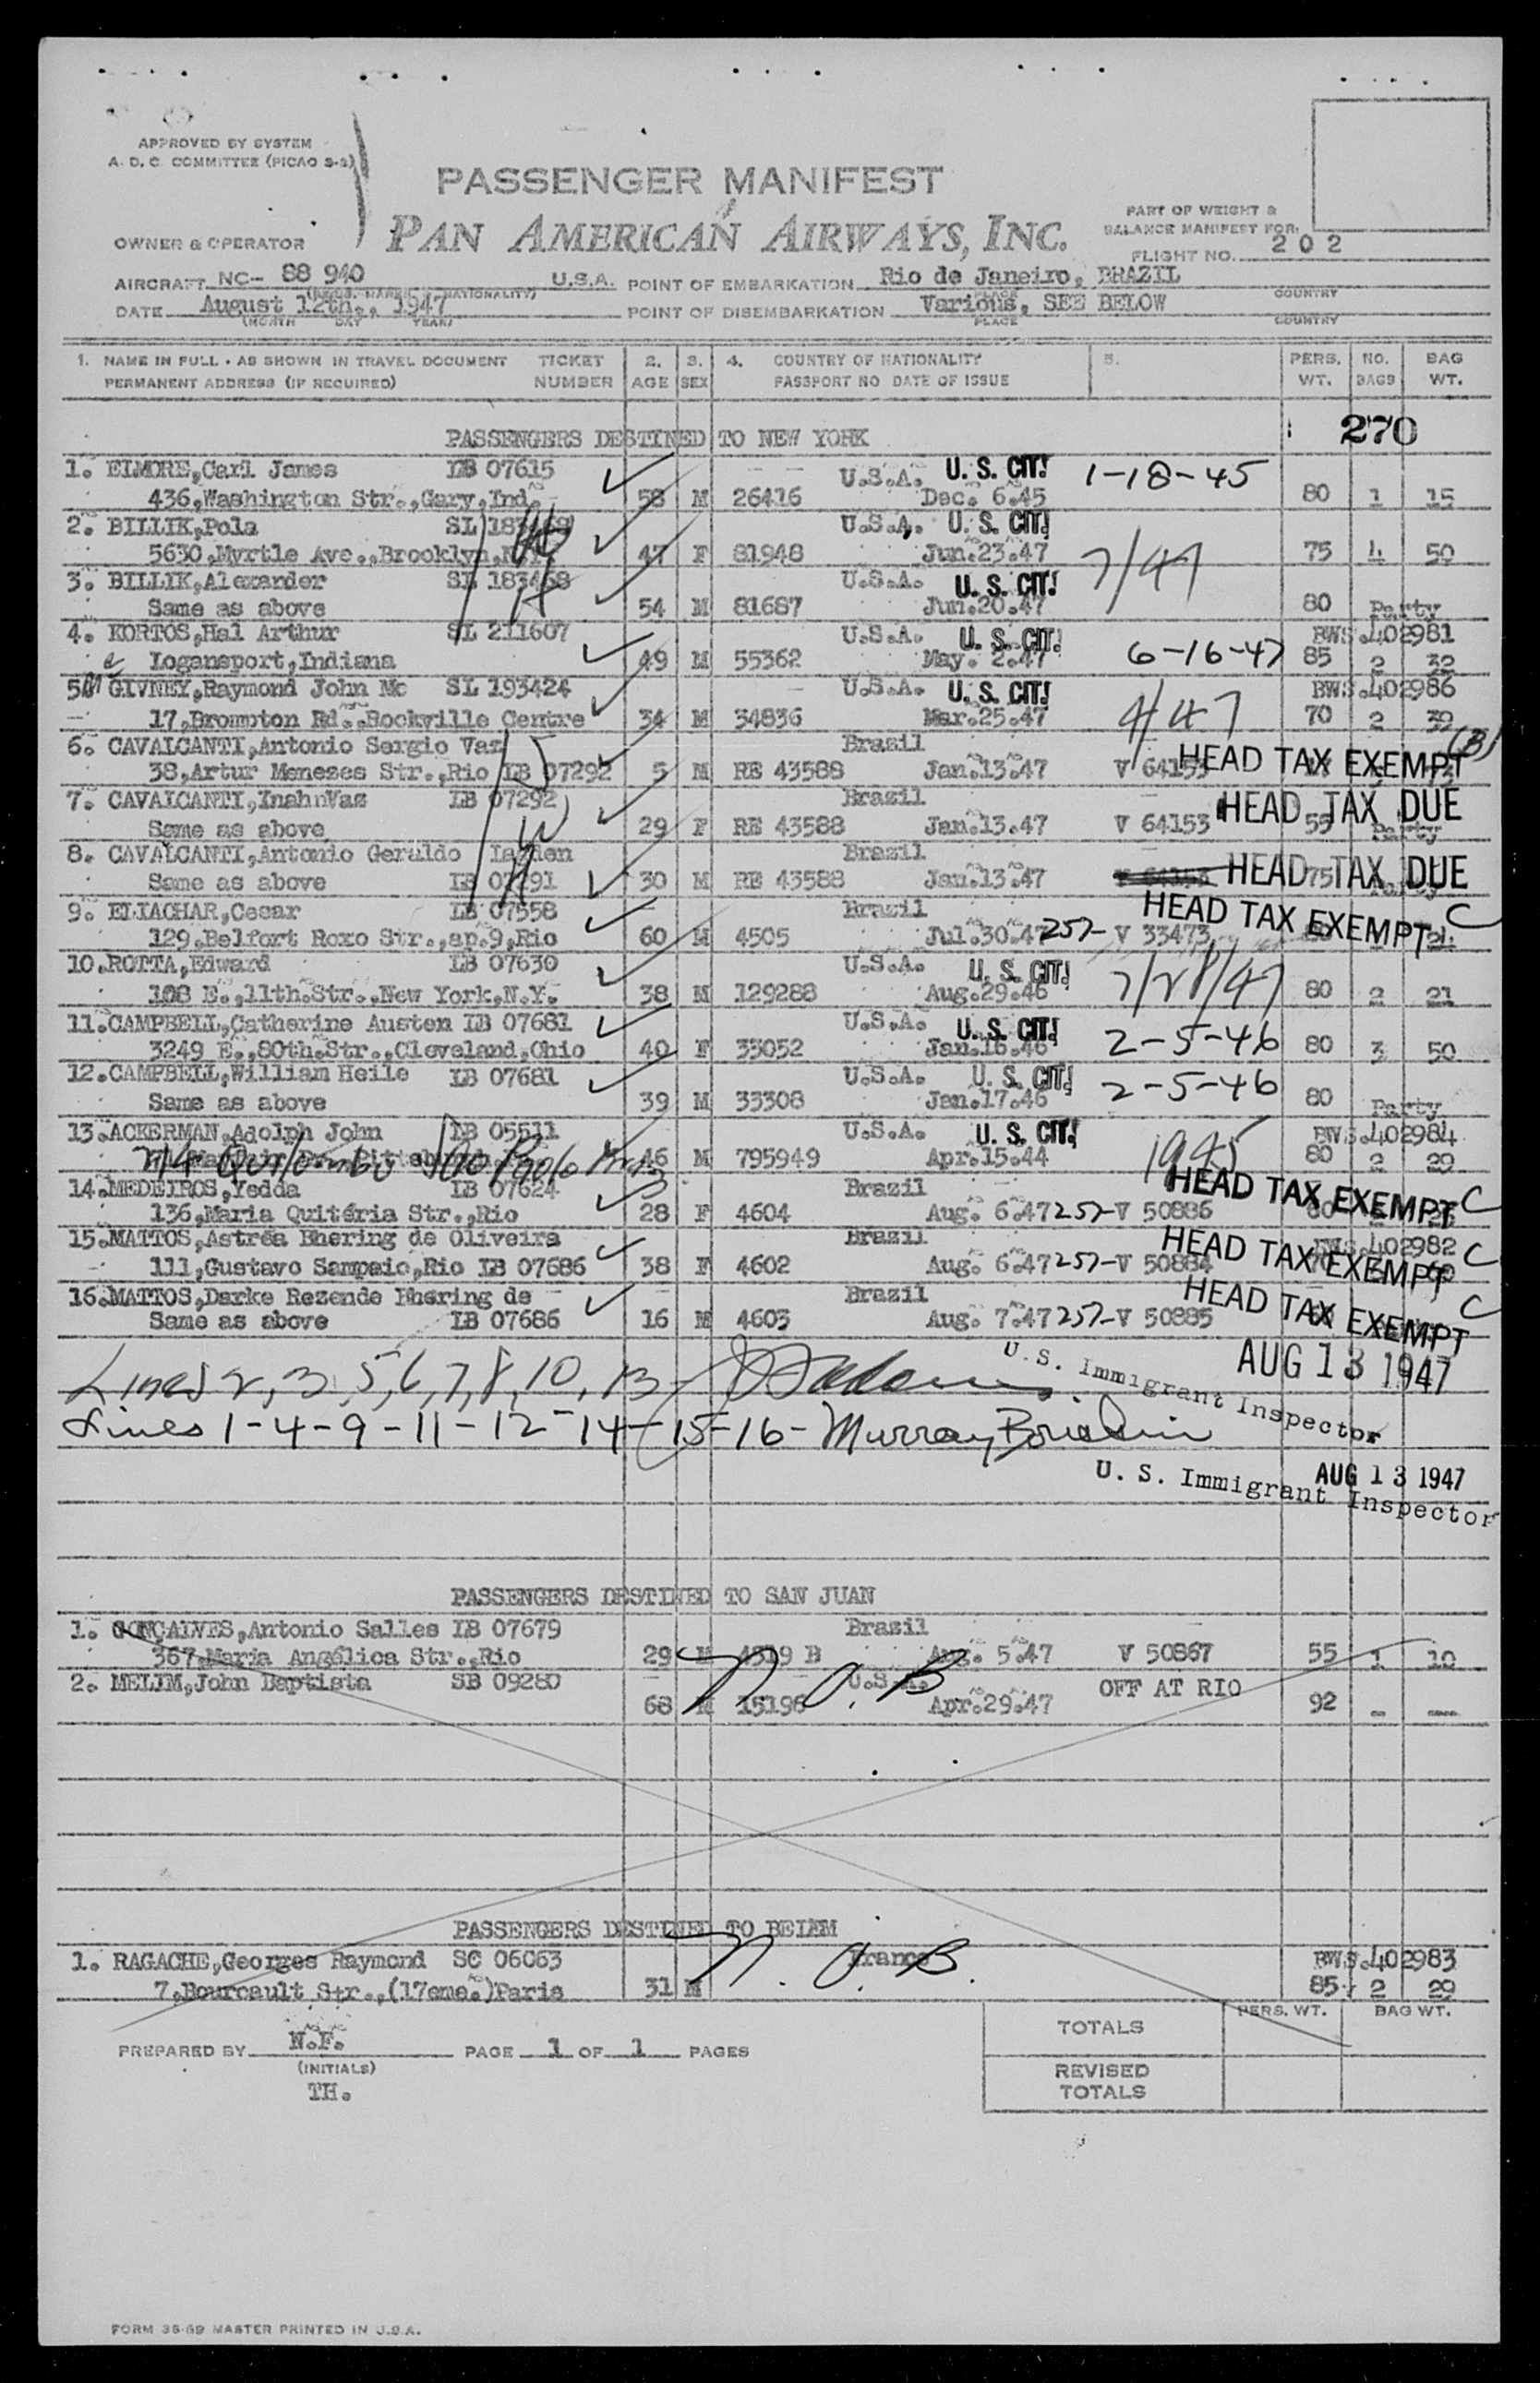 APPROVED BY SYSTEM
A. D. C. COMMITTEE (PICAO S-2)
PASSENGER MANIFEST
PAN AMERICAN AIRWAYS, INC.
PART OF WEIGHT &
BALANCE MANIFEST FOR:
OWNER & OPERATOR
FLIGHT NO. 202
AIRCRAFT NC- 88 940 U.S.A. POINT OF EMBARKATION Rio de Janeiro, BRAZIL
PLACE COUNTRY
DATE August 12th., 1947 POINT OF DISEMBARKATION Various, SEE BELOW
(MONTH DAY YEAR) PLACE COUNTRY
1. NAME IN FULL - AS SHOWN IN TRAVEL DOCUMENT TICKET 2. 3. 4. COUNTRY OF NATIONALITY 5. PERS. NO. BAG
PERMANENT ADDRESS (IF REQUIRED) NUMBER AGE SEX PASSPORT NO DATE OF ISSUE WT. BAGS WT.
PASSENGERS DESTINED TO NEW YORK 270
1. ELMORE,Carl James LB 07615 U.S.A. U. S. CIT. 1-18-45
436,Washington Str.,Gary,Ind. 58 M 26416 Dec. 6.45 80 1 15
2. BILLIK,Pola SL U.S.A. U. S. CIT.
5630,Myrtle Ave.,Brooklyn, 47 F 81948 Jun.23.47 7/47 75 4 50
3. BILLIK,Alexander SL 183468 U.S.A. U. S. CIT.
Same as above 54 M 81687 Jun.20.47 80 Party
4. KORTOS,Hal Arthur SL 211607 U.S.A. U. S. CIT. BWS.402981
Logansport,Indiana 49 M 55362 May. 2.47 6-16-47 85 2 32
5. GIVNEY,Raymond John Mc SL 193424 U.S.A. U. S. CIT. BWS.402986
17,Brompton Rd.,Rockville Centre 34 M 34836 Mar.25.47 4/47 70 2 39
6. CAVALCANTI,Antonio Sergio Vaz Brazil (B)
38,Artur Menezes Str.,Rio LB 07292 5 M RE 43588 Jan.13.47 V 64153 HEAD TAX EXEMPT
7. CAVALCANTI,InahnVaz LB 07292 Brazil HEAD TAX DUE
Same as above 29 F RE 43588 Jan.13.47 V 64153 55 Party
8. CAVALCANTI,Antonio Geraldo Brazil
Same as above LB 30 M RE 43588 Jan.13.47 HEAD TAX DUE 75
9. ELIACHAR,Cesar LB 07558 Brazil HEAD TAX EXEMPT C
129,Belfort Roxo Str.,ap.9,Rio 60 M 4505 Jul.30.47 257- V 33473
10.ROTTA,Edward LB 07630 U.S.A. U. S. CIT.
108 E.,11th.Str.,New York,N.Y. 38 M 129288 Aug.29.46 7/28/47 80 2 21
11.CAMPBELL,Catherine Austen LB 07681 U.S.A. U. S. CIT.
3249 E.,80th.Str.,Cleveland,Ohio 40 F 33052 Jan.16.46 2-5-46 80 3 50
12.CAMPBELL,William Heile LB 07681 U.S.A. U. S. CIT.
Same as above 39 M 33308 Jan.17.46 2-5-46 80 Party
13.ACKERMAN,Adolph John LB 05511 U.S.A. U. S. CIT. BWS.402984
46 M 795949 Apr.15.44 1945 80 2 29
14.MEDEIROS,Yedda LB 07624 Brazil HEAD TAX EXEMPT C
136,Maria Quitéria Str.,Rio 28 F 4604 Aug. 6.47 257- V 50886
15.MATTOS,Astréa Bhering de Oliveira Brazil HEAD TAX EXEMPT C BWS.402982
111,Gustavo Sampaio,Rio LB 07686 38 F 4602 Aug. 6.47 257- V 50884
16.MATTOS,Darke Rezende Bhering de Brazil HEAD TAX EXEMPT C
Same as above LB 07686 16 M 4603 Aug. 7.47 257- V 50885
Lines 2, 3, 5, 6, 7, 8, 10, 13 - U. S. Immigrant Inspector AUG 13 1947
Lines 1-4-9-11-12-14-15-16- Murray
U. S. Immigrant Inspector AUG 13 1947
PASSENGERS DESTINED TO SAN JUAN
1. GONÇALVES,Antonio Salles LB 07679 Brazil
367,Maria Angélica Str.,Rio 29 M 4319 B Aug. 5.47 V 50867 55 1 10
2. MELIM,John Baptista SB 09280 N. O. B U.S.A. OFF AT RIO
68 M 15196 Apr.29.47 92 - -
PASSENGERS DESTINED TO BELEM
1. RAGACHE,Georges Raymond SC 06063 N. O. B. France BWS.402983
7,Bourcault Str.,(17eme.)Paris 31 M 85 2 29
PERS. WT. BAG WT.
TOTALS
PREPARED BY N.F. PAGE 1 OF 1 PAGES
(INITIALS)
TH.
REVISED
TOTALS
FORM 35-59 MASTER PRINTED IN U.S.A.